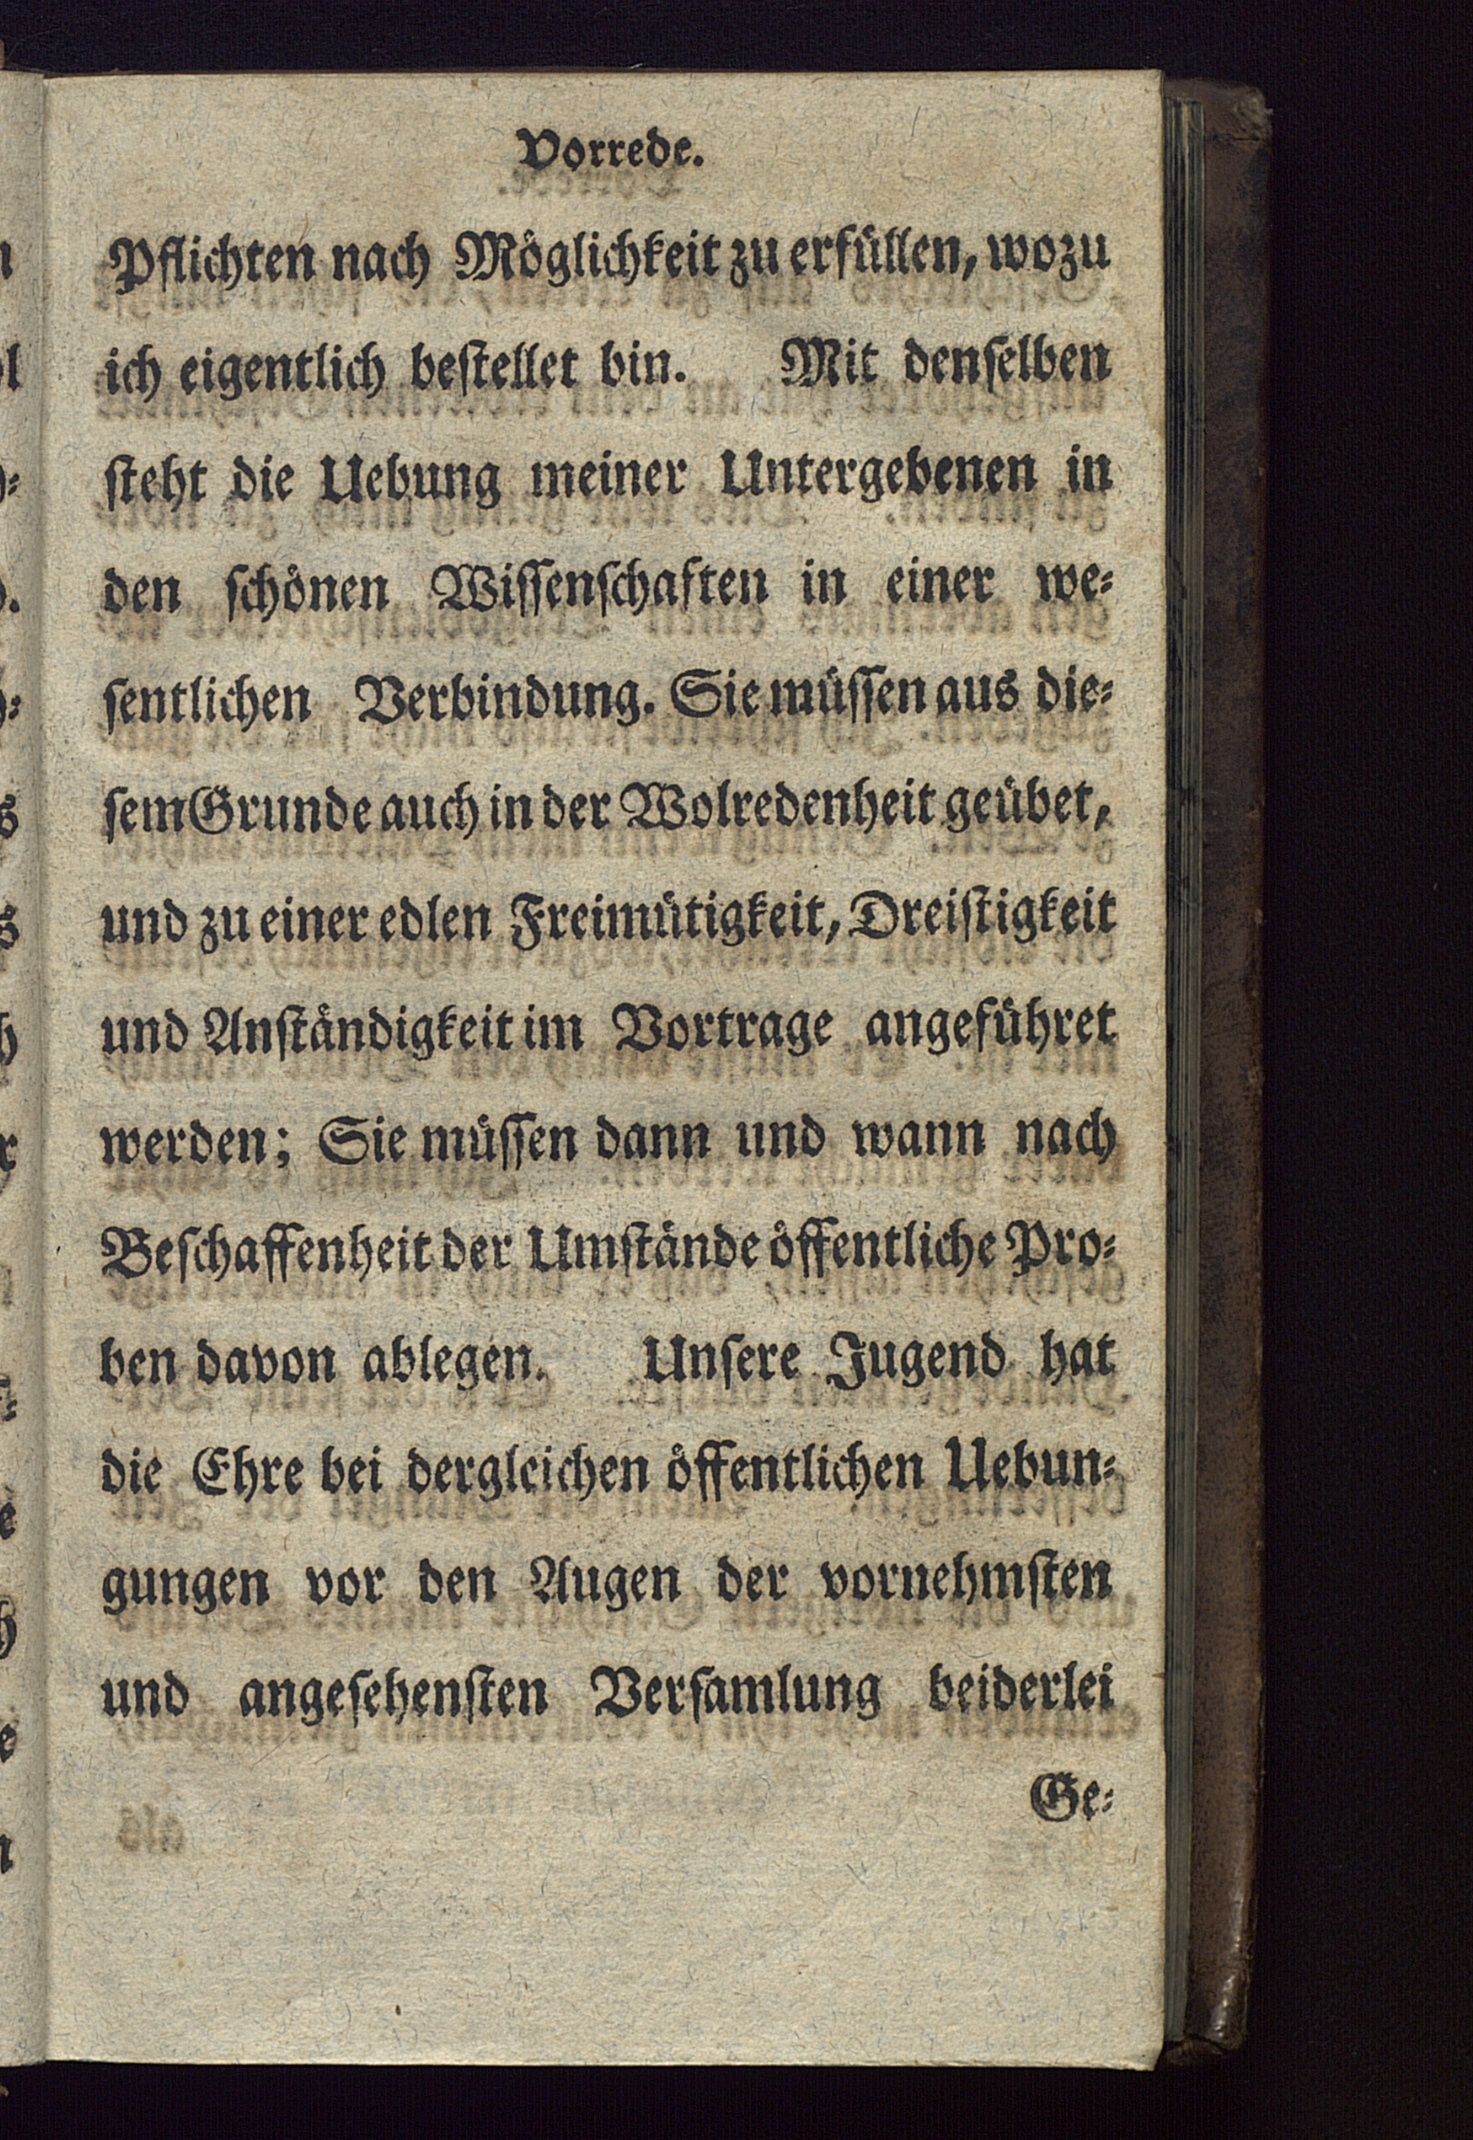 Vorrede.
Pflichten nach Möglichkeit zu erfüllen, wozu
ich eigentlich beſtellet bin. Mit denſelben
ſteht die Uebung meiner Untergebenen in
den ſchönen Wiſſenſchaften in einer we⸗
ſentlichen Verbindung. Sie müſſen aus die⸗
ſem Grunde auch in der Wolredenheit geübet,
und zu einer edlen Freimütigkeit, Dreiſtigkeit
und Anſtändigkeit im Vortrage angeführet
werden; Sie müſſen dann und wann nach
Beſchaffenheit der Umſtände öffentliche Pro⸗
ben davon ablegen. Unſere Jugend hat
die Ehre bei dergleichen öffentlichen Uebun⸗
gungen vor den Augen der vornehmſten
und angeſehenſten Verſamlung beiderlei
Ge⸗